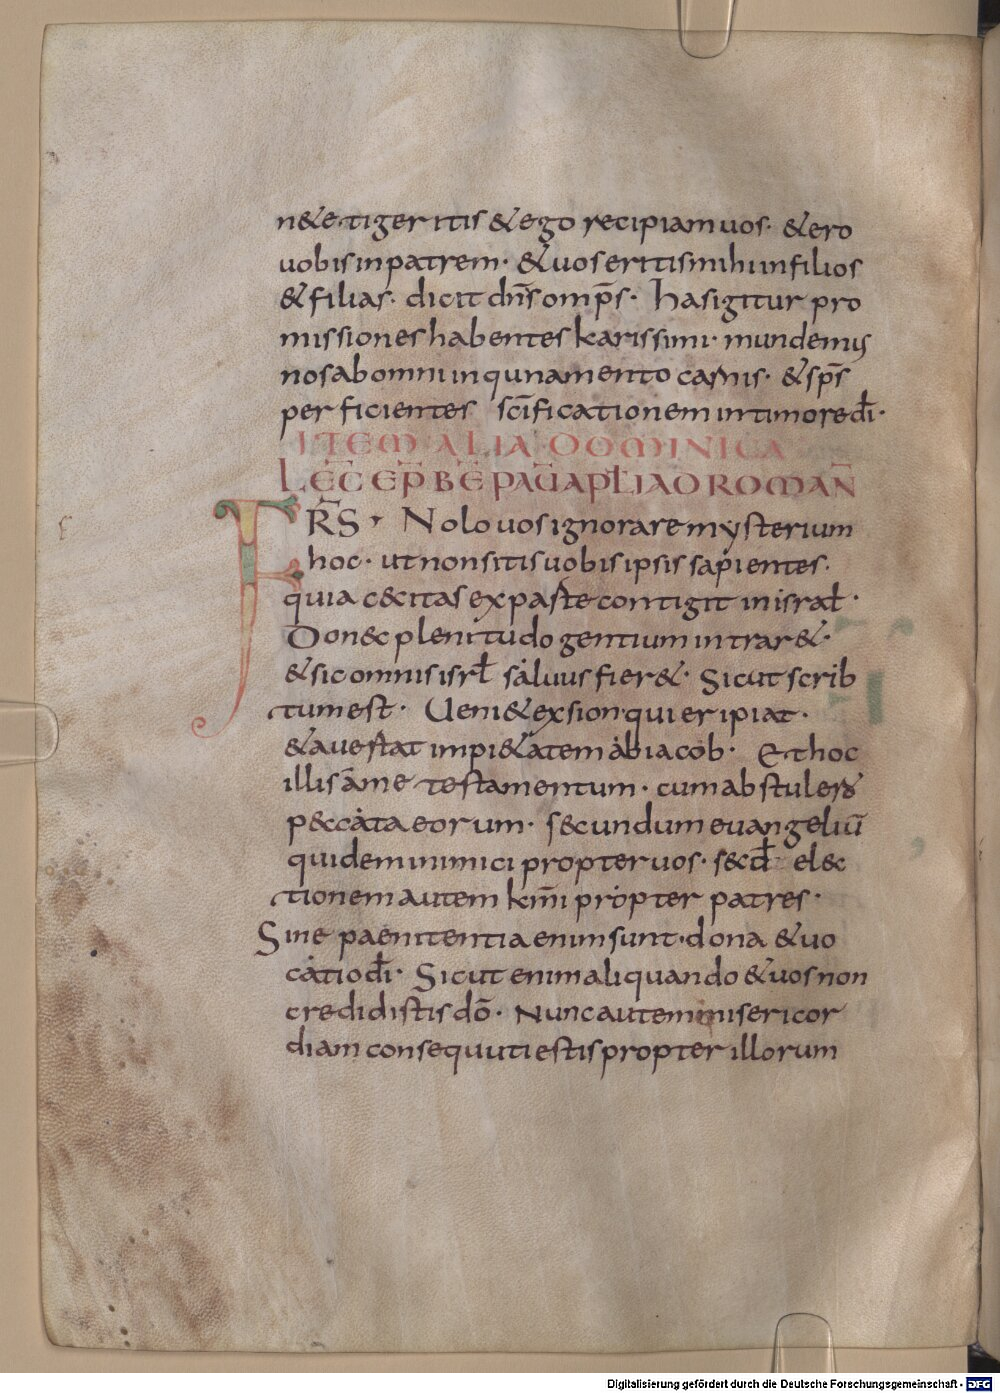 n&e tigeritis & ego recipiam uos· & ero
uobis in patrem· & uos eritis mihi in filios
& filias· dicit dn̄s omp̄s· has igitur pro
missiones habentes karissimi· mundemus
nos ab omni inqunamento carnis· & sp̄s
perficientes sc̄ificationem in timore dī·
ITEM ALIA DOMINICA
LEC̄ EP̄ BĒ PAU̅ APLI AD ROMAN̄
FR̄S· Nolo uos ignorare mysterium
hoc· ut non sitis uobis ipsis sapientes·
quia c&citas ex parte contigit in israł·
Donec plenitudo gentium intrar&·
& sic omnis isrł saluus fier&· Sicut scrib
tum est· Ueni& ex sion qui eripiat·
& auertat impi&atem ab iacob· Et hoc
illis a me testamentum· cum abstulero
p&ccata eorum· secundum euangeliū
quidem inimici propter uos· sec̄d elec
tionem autem km̄i propter patres·
Sine paenitentia enim sunt· dona & uo
catio dī· Sicut enim aliquando & uos non
credidistis dō· Nunc autem misericor
diam consequuti estis propter illorum
Digitalisierung gefördert durch die Deutsche Forschungsgemeinschaft - DFG